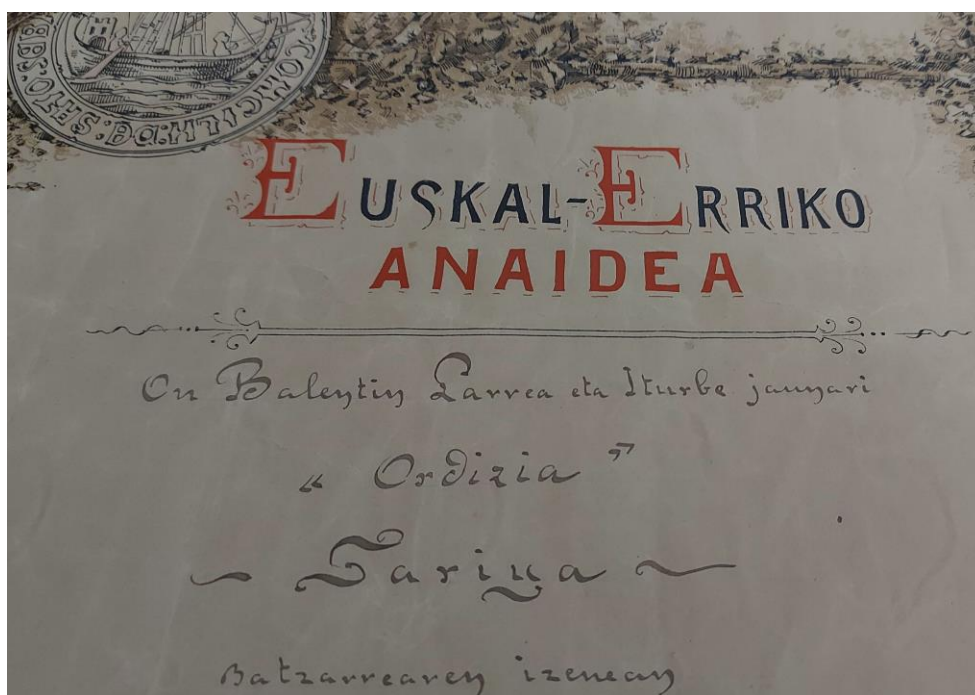 EUSKAL-ERRIKO
ANAIDEA
On Balentin Larrea eta Iturbe jaunari
« Ordizia »
~ Sariya ~
Batzarrearen izenean